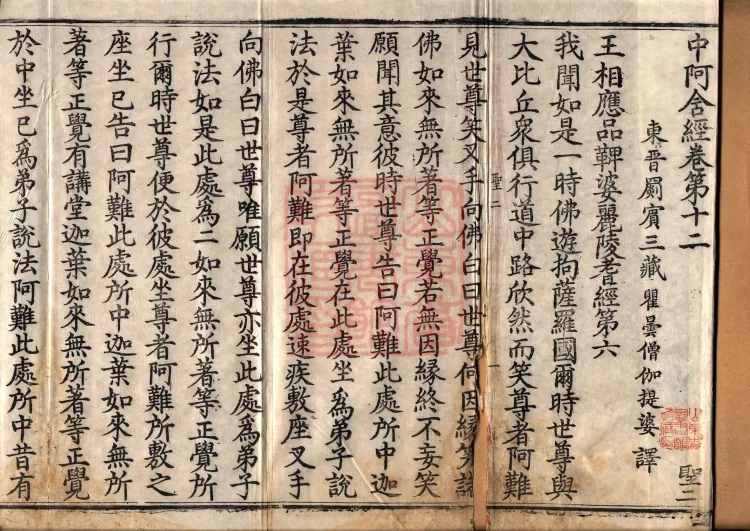 中阿含經卷第十二
東晉罽賓三藏瞿曇僧伽提婆譯
聖二
王相應品鞞婆麗陵耆經第六
我聞如是一時佛遊拘薩羅國爾時世尊與
大比丘衆俱行道中路欣然而笑尊者阿難
聖二
見世尊笑叉手向佛白曰世尊何因緣笑諸
佛如來無所著等正覺若無因緣終不妄笑
願聞其意彼時世尊告曰阿難此處所中迦
葉如來無所著等正覺在此處坐爲弟子說
法於是尊者阿難即在彼處速疾敷座叉手
向佛白曰世尊唯願世尊亦坐此處爲弟子
說法如是此處爲二如來無所著等正覺所
行爾時世尊便於彼處坐尊者阿難所敷之
座坐已告曰阿難此處所中迦葉如來無所
著等正覺有講堂迦葉如來無所著等正覺
於中坐已爲弟子說法阿難此處所中昔有